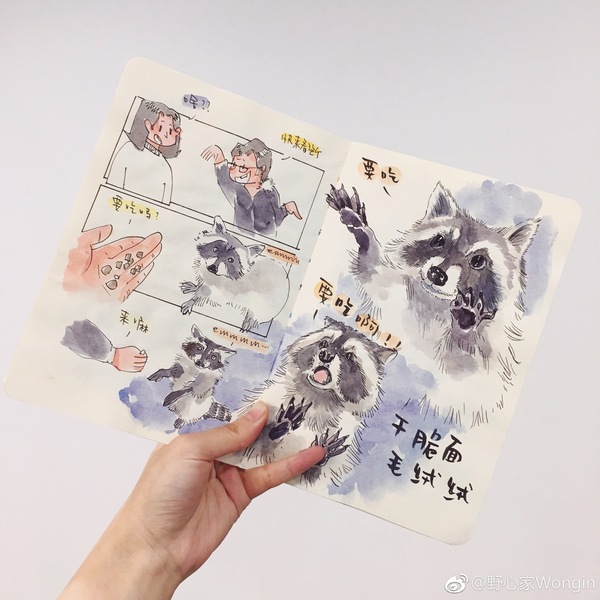 啥?!
要吃吗?
来嘛
emmmm...
要吃
要吃啊!!
干脆面
毛绒绒
@野心家Wongin